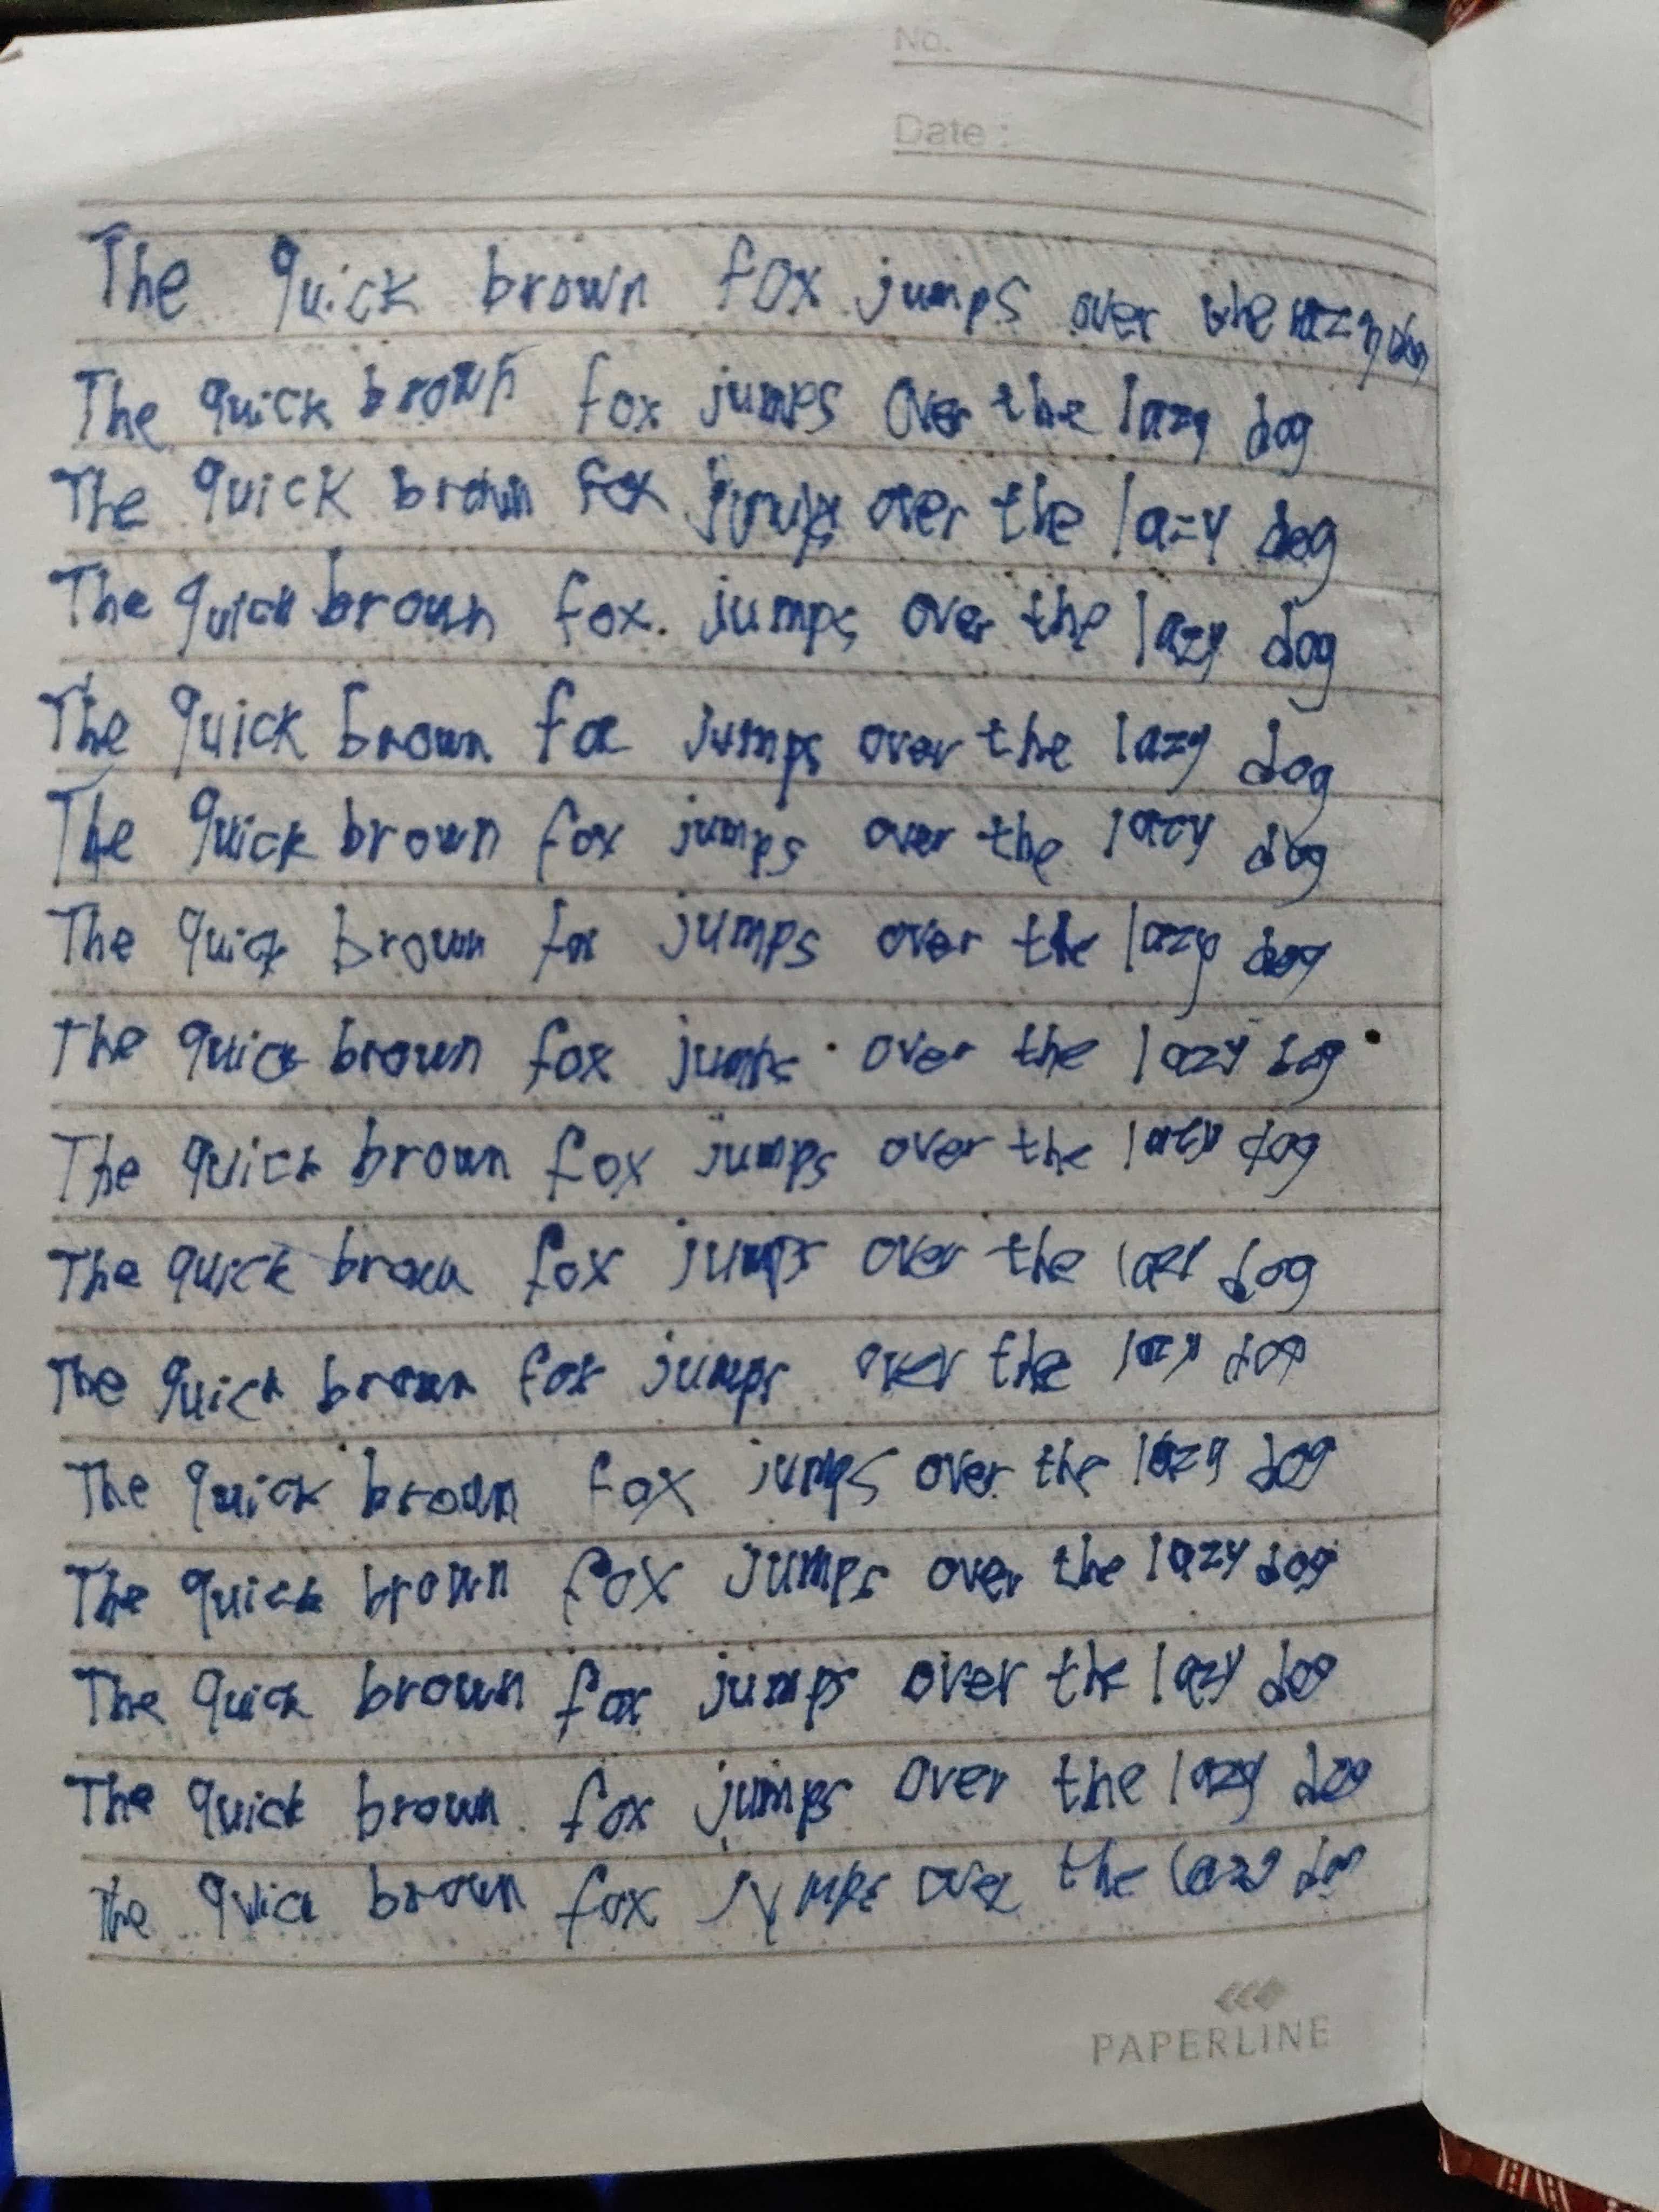 No.
Date :
The quick brown fox jumps over the lazy dog
The quick brown fox jumps over the lazy dog
The quick brown fox jumps over the lazy dog
The quick brown fox. jumps over the lazy dog
The quick brown fox jumps over the lazy dog
The quick brown fox jumps over the lazy dog
The quick brown fox jumps over the lazy dog
The quick brown fox jumps over the lazy dog
The quick brown fox jumps over the lazy dog
The quick brown fox jumps over the lazy dog
The quick brown fox jumps over the lazy dog
The quick brown fox jumps over the lazy dog
The quick brown fox jumps over the lazy dog
The quick brown fox jumps over the lazy dog
The quick brown fox jumps over the lazy dog
The quick brown fox jumps over the lazy dog
PAPERLINE